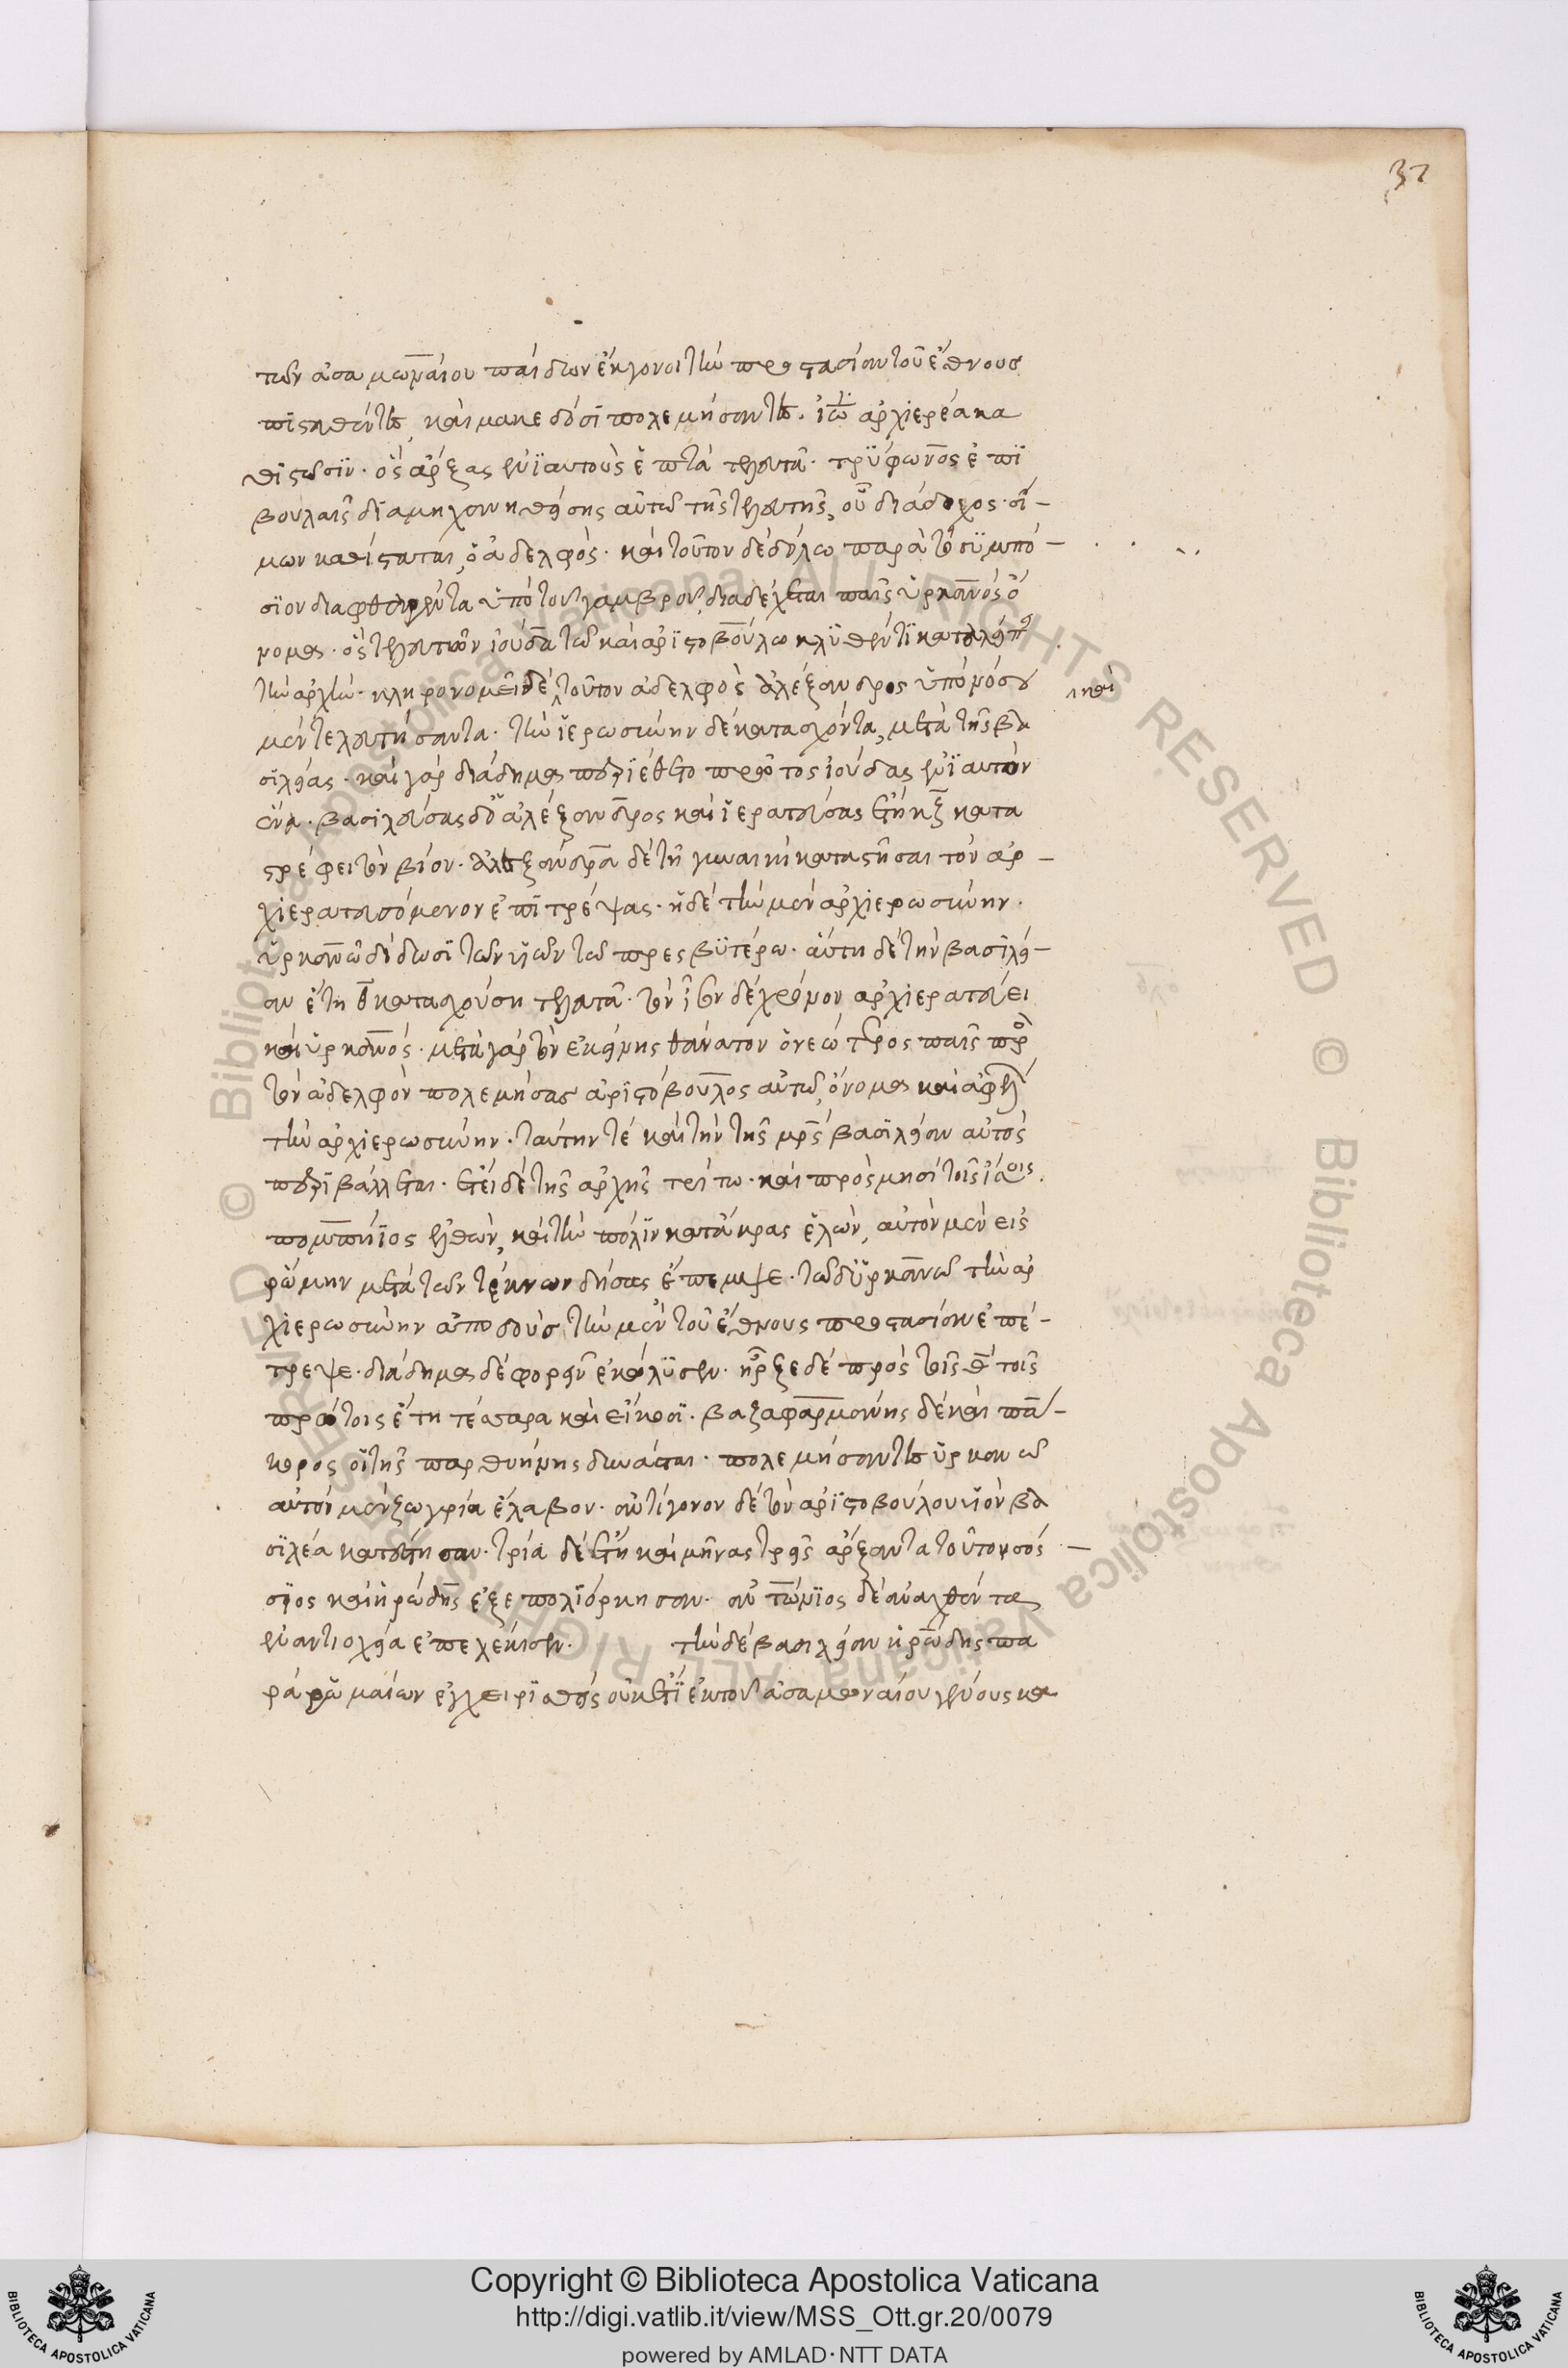 37
τῶν ἀσαμωναίου παίδων ἔκγονοι τὴν προστασίαν τοῦ ἔθνους
πιστευθέντες, καὶ μακεδόσι πολεμήσαντες. ἰω ἀρχιερέα κα
θιστῶσιν. ὃς ἄρξας ἐνιαυτοὺς ἑπτὰ τελευτᾶ. τρύφωνος ἐπι
βουλαῖς διαμηχανηθείσης αὐτῶ τῆς τελευτῆς, οὗ διάδοχος σί-
μων καθίσταται, ὁ ἀδελφός. καὶ τοῦτον δὲ δόλω παρὰ τὸ συμπό-
σιον διαφθαρέντα ὑπὸ τοῦ γαμβροῦ, διαδέχεται παῖς ὑρκανὸς ὄ
νομα. ὃς τελευτῶν ἰούδα τῶ καὶ ἀριστοβούλω κληθέντι καταλείπει
τὴν ἀρχήν. κληρονομεῖ δὲ τοῦτον ἀδελφὸς ἀλέξανδρος ὑπὸ νόσου
καὶ
μὲν τελευτήσαντα. τὴν ἱερωσύνην δὲ κατασχόντα, μετὰ τῆς βα
σιλείας. καὶ γὰρ διάδημα περιέθετο πρῶτος ἰούδας ἐνιαυτὸν
ἕνα. βασιλεύσας δ' ὁ ἀλέξανδρος καὶ ἱερατεύσας ἔτη κζ κατα
στρέφει τὸν βίον. ἀλεξάνδρα δὲ τῆ γυναικὶ καταστῆσαι τὸν ἀρ-
χιερατευσόμενον ἐπιτρέψας. ἡ δὲ τὴν μὲν ἀρχιερωσύνην.
ὑρκανῶ δίδωσι τῶν υἱῶν τῶ πρεσβυτέρω. αὕτη δὲ τὴν βασιλεί-
αν ἔτη θ κατασχοῦσα τελευτᾶ. τὸν ἴσον δὲ χρόνον ἀρχιερατεύει
καὶ ὑρκανός. μετὰ γὰρ τὸν ἐκείνης θάνατον ὁ νεώτερος παῖς πρὸς
τὸν ἀδελφὸν πολεμήσας ἀριστόβουλος αὐτῶ, ὄνομα καὶ ἀφελὼν
τὴν ἀρχιερωσύνην. ταύτην τὲ καὶ τὴν τῆς μρς βασιλείαν αὐτὸς
περιβάλλεται. ἔτει δὲ τῆς ἀρχῆς τρίτω. καὶ πρὸς μησὶ τοῖς ἴσοις.
πομπήιος ἐλθών, καὶ τὴν πόλιν κατάκρας ἑλών, αὐτὸν μὲν εἰς
ῥώμην μετὰ τῶν τέκνων δήσας ἔπεμψε. τῶ δ' ὑρκανῶ τὴν ἀρ
χιερωσύνην ἀποδοὺς τὴν μὲν τοῦ ἔθνους προστασίαν ἐπέ-
τρεψε. διάδημα δὲ φορεῖν ἐκώλυσεν. ἦρξε δὲ πρὸς τοῖς θ τοῖς
πρώτοις ἔτη τέσσαρα καὶ εἴκοσι. βαζαφαρμάνης δὲ καὶ πά-
κορος οἱ τῆς παρθυήνης δυνάσται. πολεμήσαντες ὑρκανῶ
αὐτὸν μὲν ζωγρία ἔλαβον. ἀντίγονον δὲ τὸν ἀριστοβούλου υἱὸν βα
σιλέα κατέστησαν. τρία δὲ ἔτη καὶ μῆνας τρεῖς ἄρξαντα τοῦτον σόσ-
σιος καὶ ἡρώδης ἐξεπολιόρκησαν. ἀντώνιος δὲ ἀναχθέντα
ἐν ἀντιοχεία ἐπελέκισεν. τὴν δὲ βασιλείαν ἡρώδης πα
ρὰ ῥωμαίων ἐγχειρισθεὶς οὐκέτι ἐκ τοῦ ἀσαμωναίου γένους κα
Copyright © Biblioteca Apostolica Vaticana
http://digi.vatlib.it/view/MSS_Ott.gr.20/0079
powered by AMLAD·NTT DATA